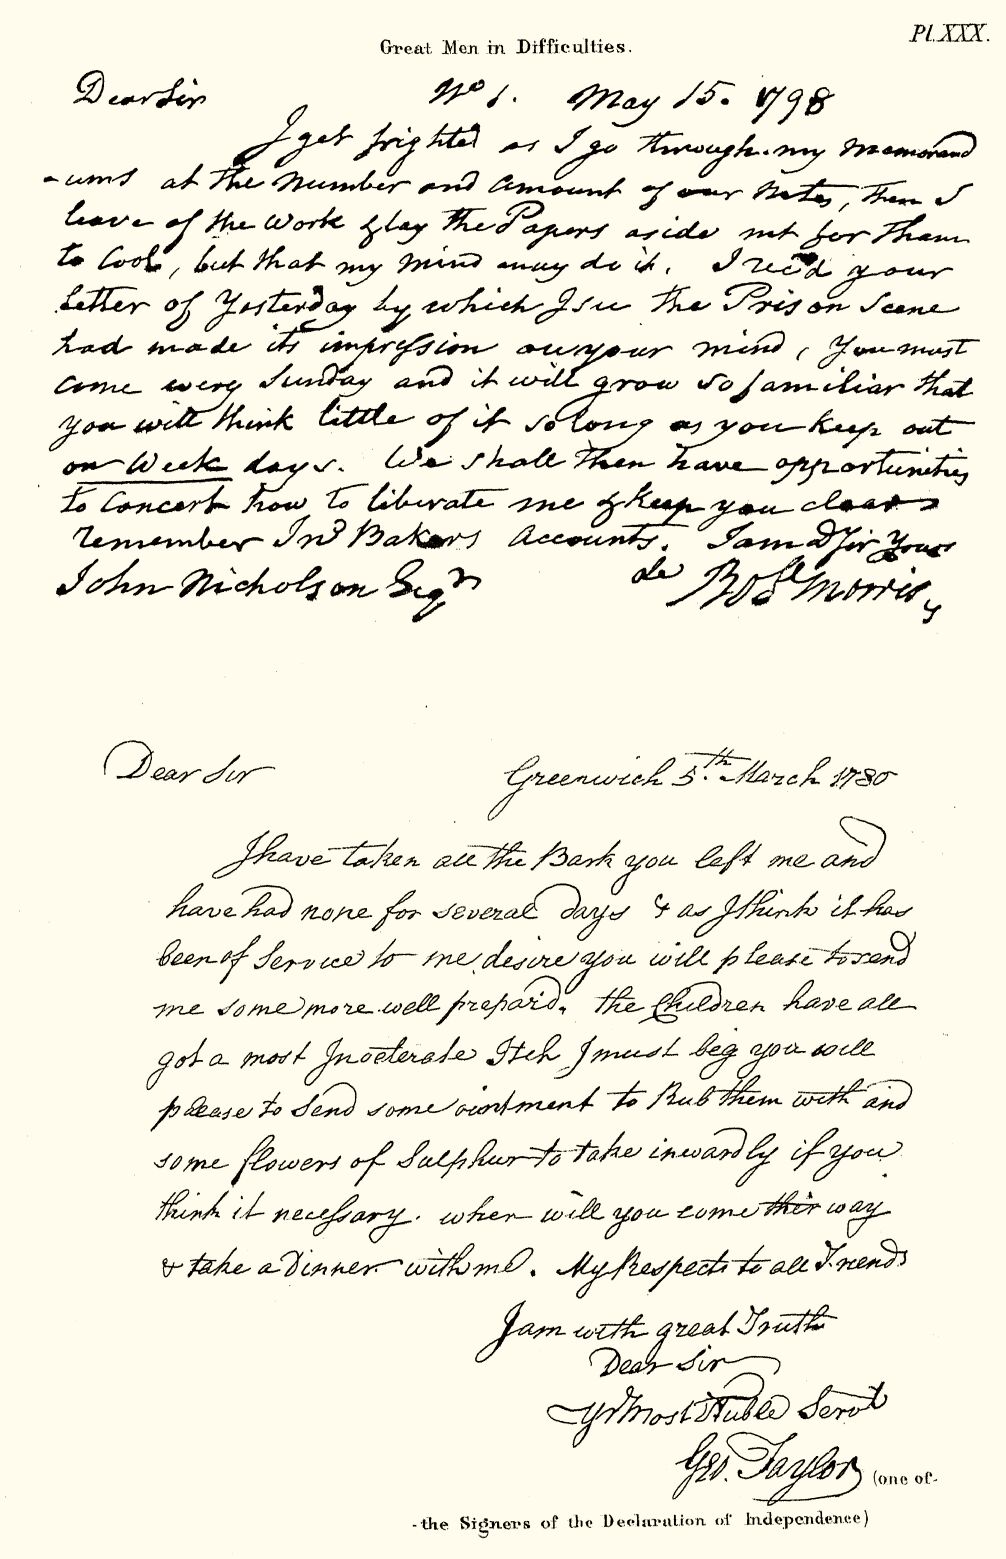 Pl. XXX.
Great Men in Difficulties.
Dear Sir No 1. May 15. 1798
I get frighted as I go through my Memorand
-ums at the Number and Amount of our Notes, then I
leave of the Work & lay the Papers aside not for them
to Cool, but that my mind may do it. I rec'd your
letter of Yesterday by which I see the Prison Scene
had made its impression on your mind, You must
come every Sunday and it will grow so familiar that
you will think little of it so long as you keep out
on Week days. We shall then have opportunities
to Concert how to liberate me & keep you clear
remember Jno Bakers Accounts. I am D Sir Yours
John Nicholson Esqr Robt Morris
Dear Sir Greenwich 5th March 1780
I have taken all the Bark you left me and
have had none for several days & as I think it has
been of Service to me desire you will please to send
me some more well prepair'd. the Children have all
got a most Inveterate Itch I must beg you will
please to Send some ointment to Rub them with and
some flowers of Sulphur to take inwardly if you
think it necessary. when will you come this way
& take a Dinner with me. My Respects to all Friends
I am with great Truth
Dear Sir
Yr Most Huble Servt
Geo. Taylor (one of
-the Signers of the Declaration of Independence)